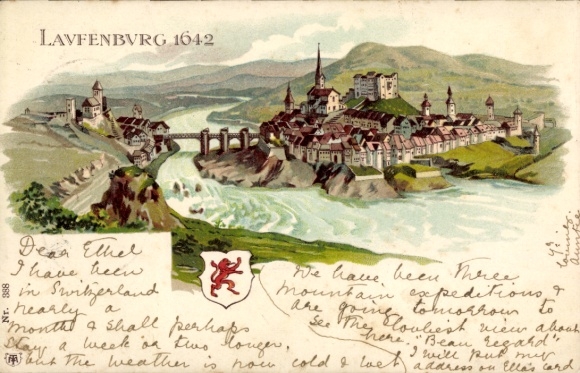 LAVFENBVRG 1642
Dear Ethel
I have been
in Switzerland
nearly a
month & shall perhaps
stay a week or two longer,
but the weather is now cold & wet
We have been three
mountain expeditions &
are going tomorrow to
see the loveliest view about
here, "Beau Regard"
I will put my
address on Ella's card
Nr. 388